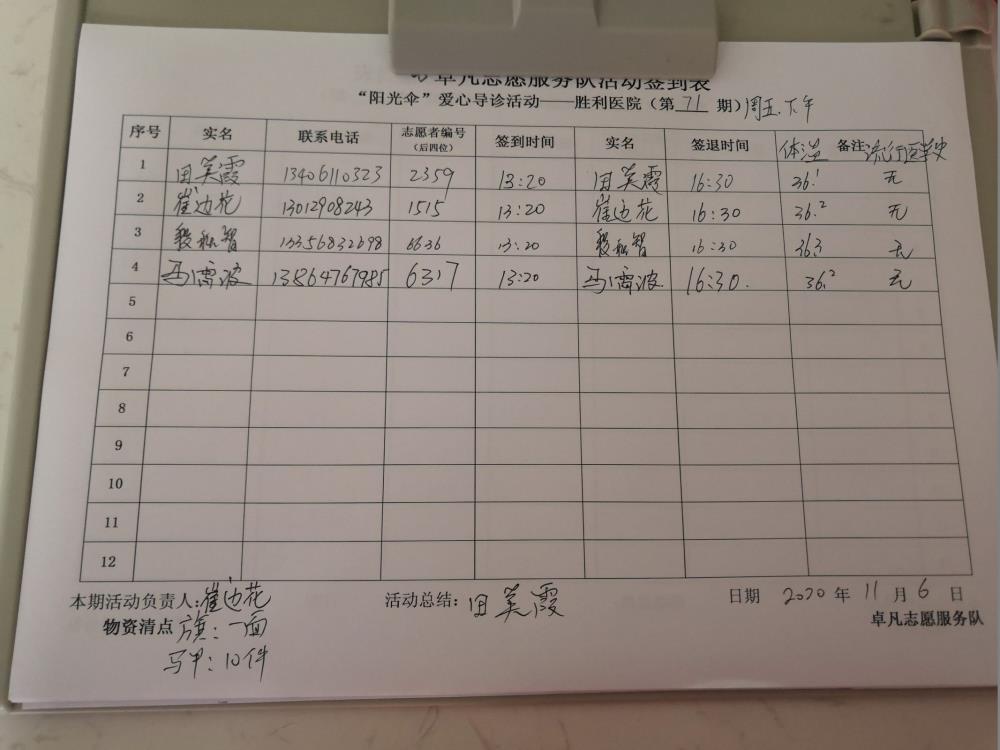 卓凡志愿服务队活动签到表
“阳光伞”爱心导诊活动——胜利医院（第 71 期）周五.下午
序号 实名 联系电话 志愿者编号（后四位） 签到时间 实名 签退时间 体温 备注:流行医学史
1 田美霞 13406110323 2359 13:20 田美霞 16:30 36.1 无
2 崔边花 13012908243 1515 13:20 崔边花 16:30 36.2 无
3 13356832698 6636 13:20 16:30 36.3 无
4 马雷波 13864767985 6317 13:20 马雷波 16:30. 36.2 无
5
6
7
8
9
10
11
12
本期活动负责人:崔边花 活动总结: 田美霞 日期 2020 年 11 月 6 日
物资清点 旗：一面 卓凡志愿服务队
马甲：10件